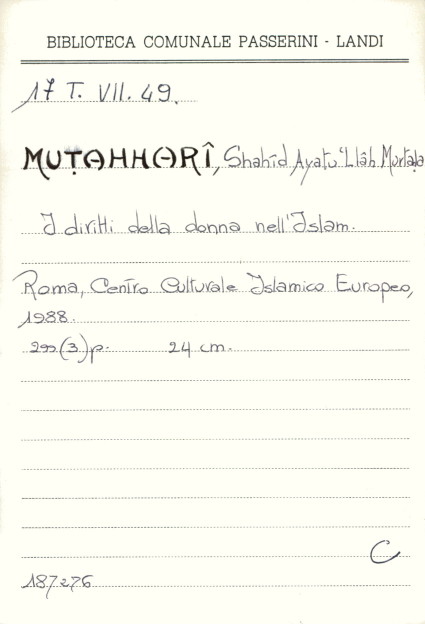 BIBLIOTECA COMUNALE PASSERINI - LANDI
17 T. VII. 49.
MUṬAHHARÎ, Shahîd Ayatu'Llâh Murtaḍa
I diritti della donna nell'Islam.
Roma, Centro Culturale Islamico Europeo,
1988.
299(3)p. 24 cm.
C
187276